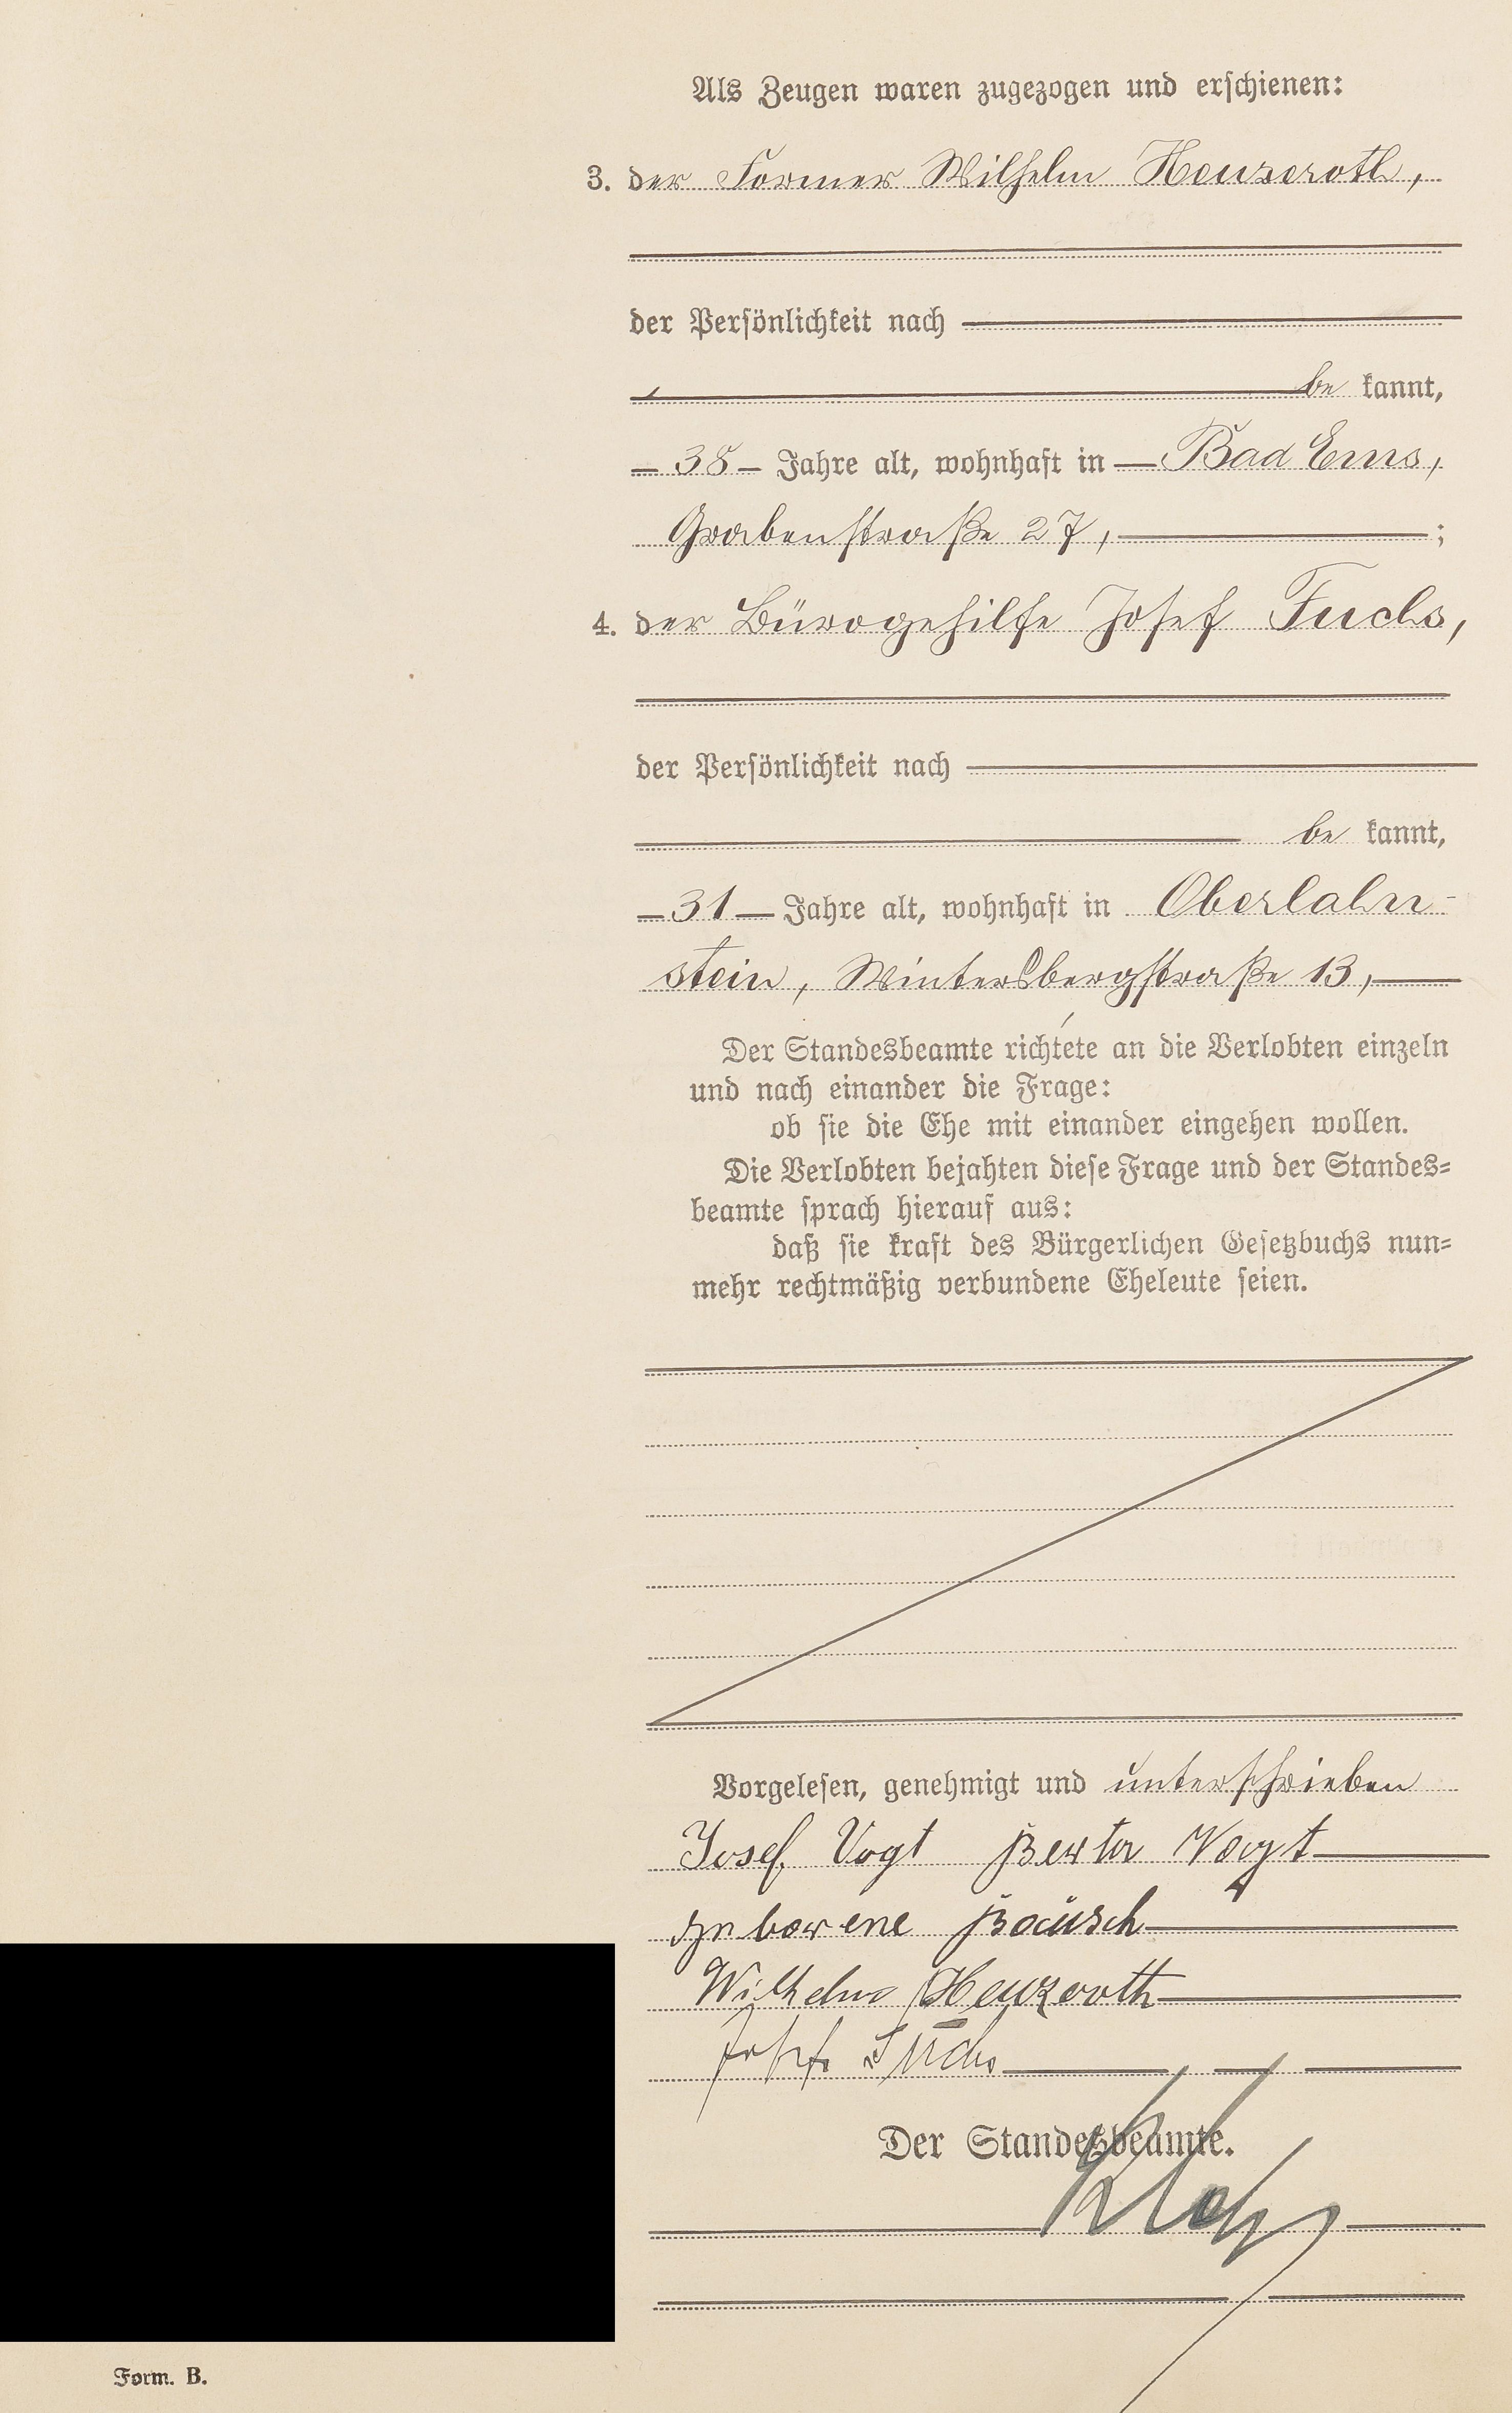 Als Zeugen waren zugezogen und erschienen:
3. der Former Wilhelm Heuzeroth,
der Persönlichkeit nach
be kannt,
38 Jahre alt, wohnhaft in Bad Ems,
Grabenstraße 27, ;
4. der Bürogehilfe Josef Fuchs,
der Persönlichkeit nach
be kannt,
31 Jahre alt, wohnhaft in Oberlahn-
stein, Wintersbergstraße 13,
Der Standesbeamte richtete an die Verlobten einzeln
und nach einander die Frage:
ob sie die Ehe mit einander eingehen wollen.
Die Verlobten bejahten diese Frage und der Standes-
beamte sprach hierauf aus:
daß sie kraft des Bürgerlichen Gesetzbuchs nun-
mehr rechtmäßig verbundene Eheleute seien.
Vorgelesen, genehmigt und unterschrieben
Josef Vogt Berta Vogt
geborene Bausch
Wilhelm Heuzeroth
Josef Fuchs
Der Standesbeamte.
Form. B.